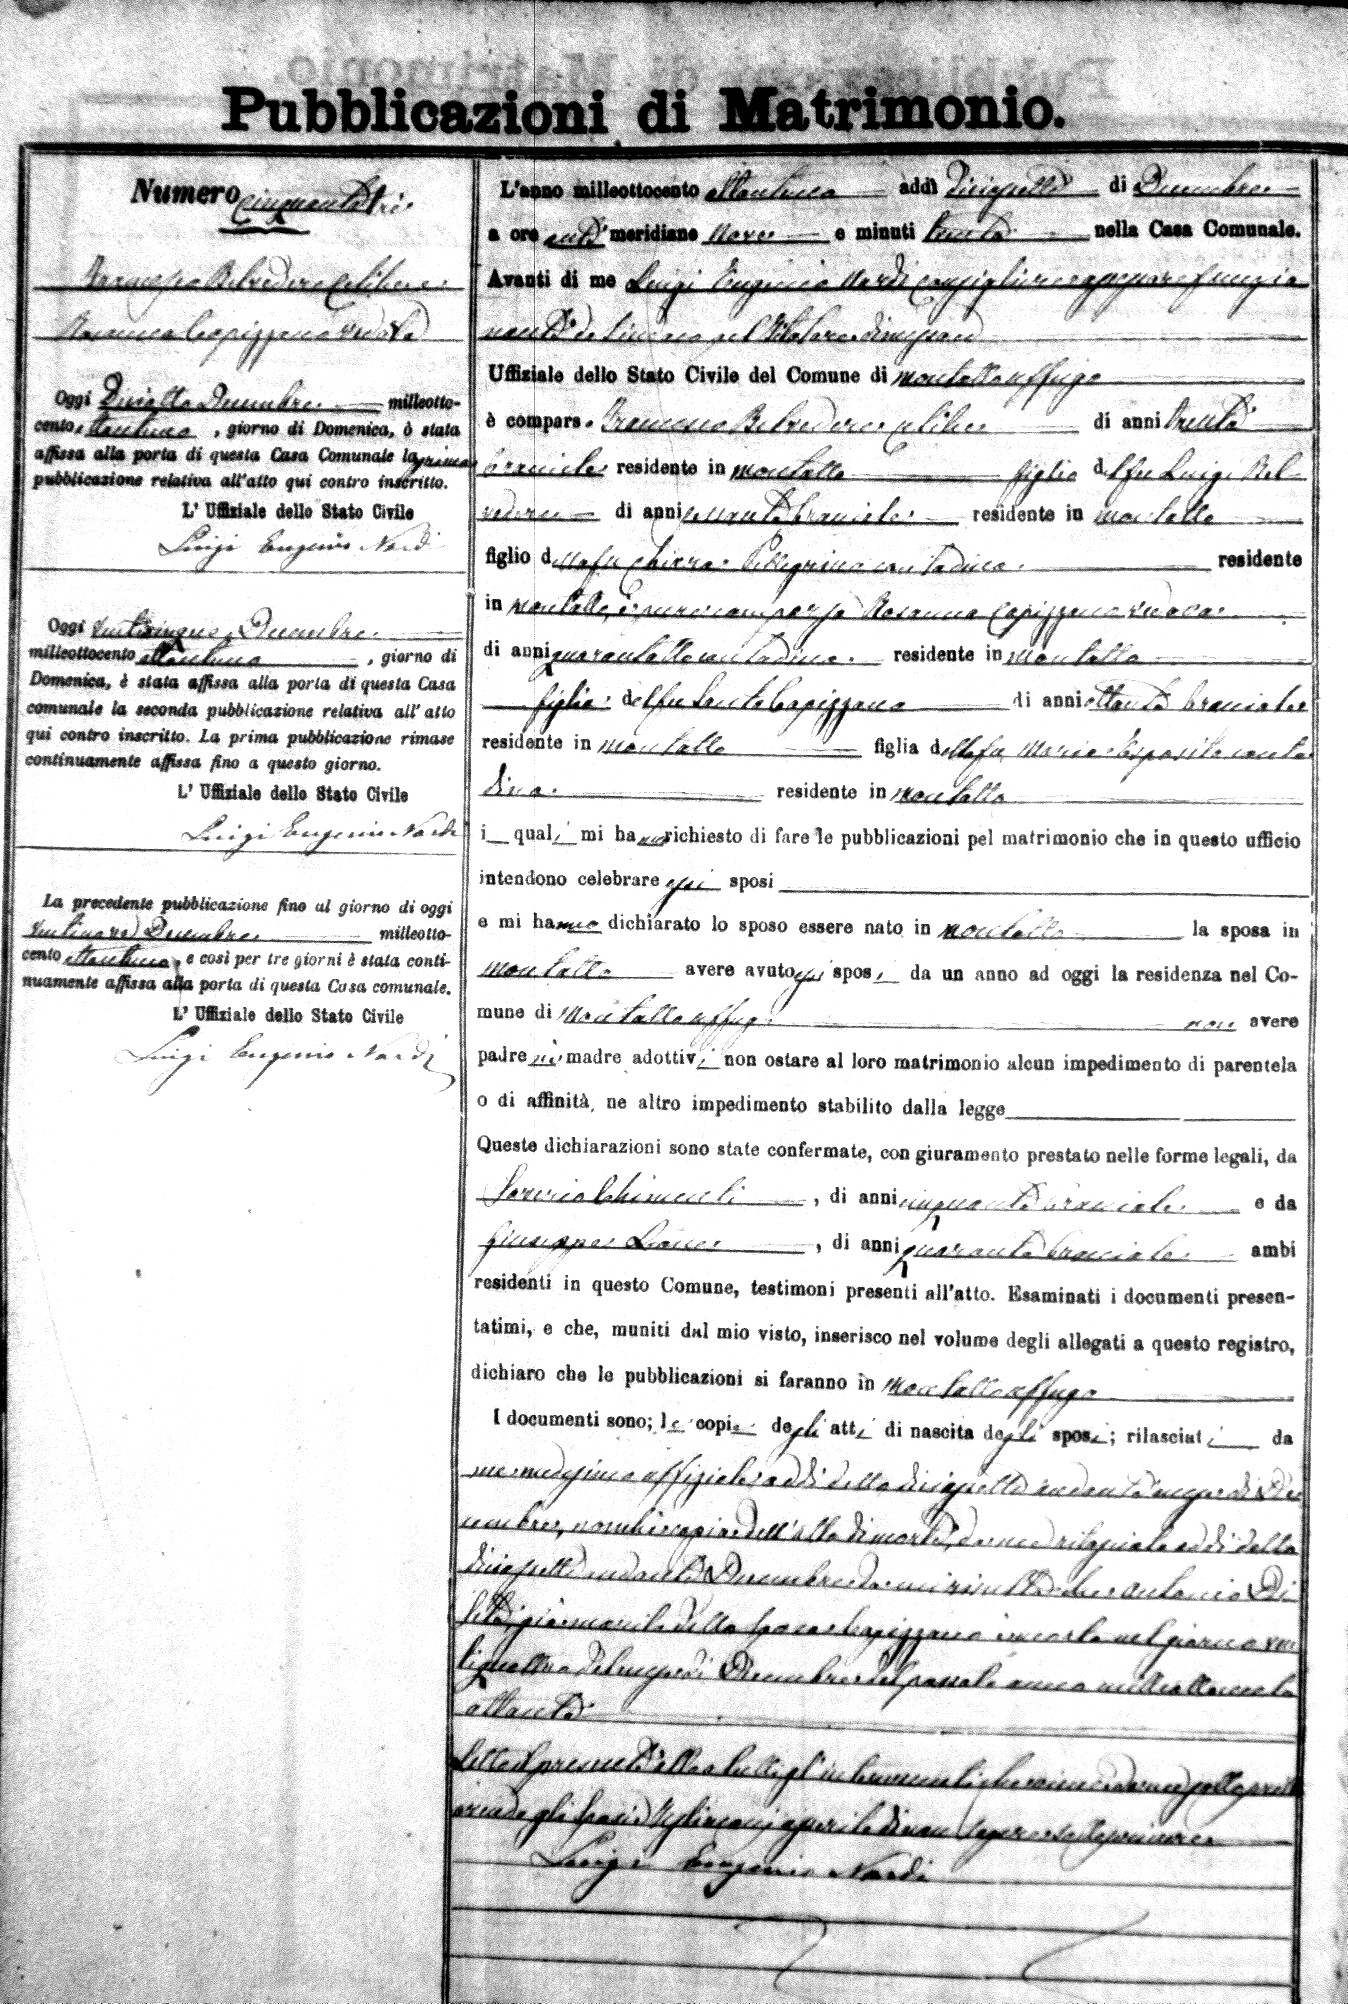 Pubblicazioni di Matrimonio.
Numero cinquantatre
Francesco Belvedere celibe e
Rosanna Capizzano vedova
Oggi Diciotto Decembre milleotto-
cento ottantuno, giorno di Domenica, è stata
affissa alla porta di questa Casa Comunale la prima
pubblicazione relativa all'atto qui contro inscritto.
L' Uffiziale dello Stato Civile
Luigi Eugenio Nardi
Oggi venticinque Decembre
milleottocento ottantuno, giorno di
Domenica, è stata affissa alla porta di questa Casa
comunale la seconda pubblicazione relativa all' atto
qui contro inscritto. La prima pubblicazione rimase
continuamente affissa fino a questo giorno.
L' Uffiziale dello Stato Civile
Luigi Eugenio Nardi
La precedente pubblicazione fino al giorno di oggi
Decembre milleotto-
cento ottantuno, e così per tre giorni è stata conti-
nuamente affissa alla porta di questa Casa comunale.
L' Uffiziale dello Stato Civile
Luigi Eugenio Nardi
L'anno milleottocento ottantuno addì diciasette di Decembre
a ore anti meridiane nove e minuti trenta nella Casa Comunale.
Avanti di me Luigi Eugenio Nardi consigliere funzio
nante da Sindaco pel titolare
Uffiziale dello Stato Civile del Comune di Montaltouffugo
è compars o Francesco Belvedere celibe di anni trenta
bracciale residente in Montalto figlio del fu Luigi Bel-
vedere di anni bracciale residente in Montalto
figlio della fu Chiara Pellegrino contadina residente
in Montalto, è pure comparsa Rosanna Capizzano vedova
di anni quarantotto contadina residente in Montalto
figlia del fu Sante Capizzano di anni ottanta bracciale
residente in Montalto figlia della fu Maria Esposito conta
dina residente in Montalto
i quali mi hanno richiesto di fare le pubblicazioni pel matrimonio che in questo ufficio
intendono celebrare essi sposi
e mi hanno dichiarato lo sposo essere nato in Montalto la sposa in
Montalto avere avuto essi sposi da un anno ad oggi la residenza nel Co-
mune di Montaltouffugo non avere
padre nè madre adottivi non ostare al loro matrimonio alcun impedimento di parentela
o di affinità, ne altro impedimento stabilito dalla legge
Queste dichiarazioni sono state confermate, con giuramento prestato nelle forme legali, da
Saverio Chimenti, di anni cinquanta bracciale e da
Giuseppe, di anni quaranta bracciale ambi
residenti in questo Comune, testimoni presenti all'atto. Esaminati i documenti presen-
tatimi, e che, muniti dal mio visto, inserisco nel volume degli allegati a questo registro,
dichiaro che le pubblicazioni si faranno in Montaltouffugo
I documenti sono; le copie degli atti di nascita degli sposi; rilasciati da
me medesimo uffiziale addì detto diciasette andante mese di De
cembre, nonchè copia dell'atto di morte, da me rilasciata addì detto
diciasette andante Decembre da cui risulta che Antonio Di
già marito della sposa Capizzano è morto nel giorno ven
tiquattro del mese di Decembre del passato anno milleottocento
ottanta
Letto il presente atto a tutti gl'intervenuti
degli sposi e testimoni di non sapere sottoscrivere
Luigi Eugenio Nardi